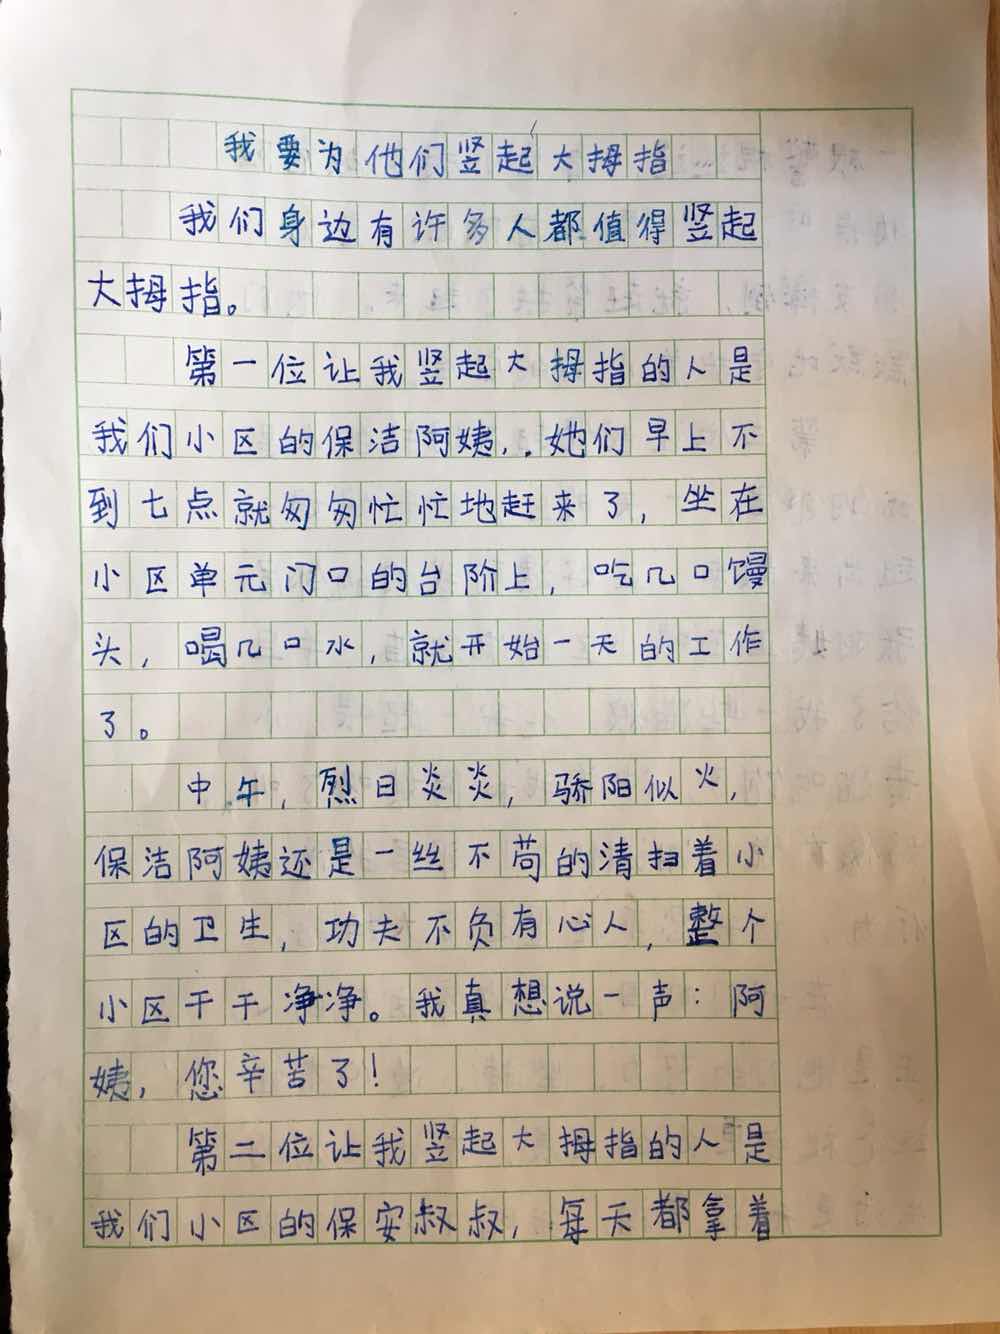 我要为他们竖起大拇指
我们身边有许多人都值得竖起
大拇指。
第一位让我竖起大拇指的人是
我们小区的保洁阿姨,.她们早上不
到七点就匆匆忙忙地赶来了，坐在
小区单元门口的台阶上，吃几口馒
头，喝几口水，就开始一天的工作
了。
中午，烈日炎炎，骄阳似火，
保洁阿姨还是一丝不苟的清扫着小
区的卫生，功夫不负有心人，整个
小区干干净净。我真想说一声：阿
姨，您辛苦了！
第二位让我竖起大拇指的人是
我们小区的保安叔叔，每天都拿着